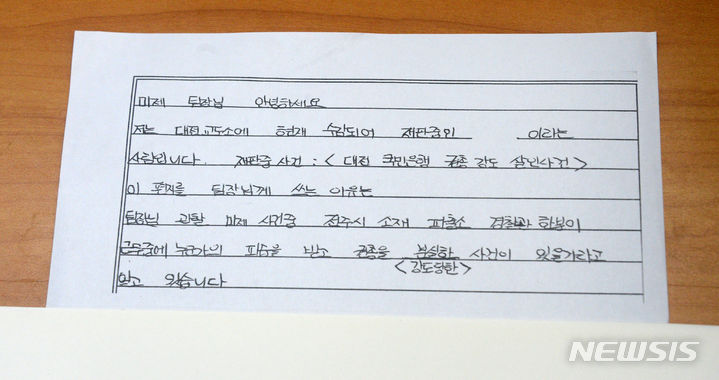 미제 팀장님 안녕하세요
저는 대전교도소에 현재 수감되어 재판중인 이라는
사람입니다. 재판중 사건 : <대전 국민은행 권총 강도 살인사건>
이 편지를 팀장님께 쓰는 이유는
팀장님 관할 미제 사건중 전주시 소재 파출소 경찰관 한분이
근무중에 누군가의 피습을 받고 권총을 분실한 사건이 있을거라고
<강도당한>
알고 있습니다
NEWSIS